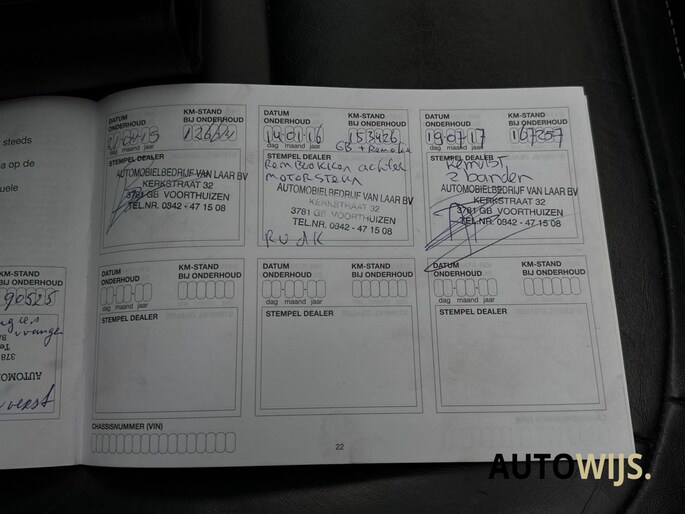 steeds
a op de
uele
KM-STAND
BIJ ONDERHOUD
90525
378
AUTOMO
DATUM
ONDERHOUD
KM-STAND
BIJ ONDERHOUD
dag maand jaar
STEMPEL DEALER
AUTOMOBIELBEDRIJF VAN LAAR BV
KERKSTRAAT 32
3781 GB VOORTHUIZEN
TEL.NR. 0342 - 47 15 08
DATUM
ONDERHOUD
KM-STAND
BIJ ONDERHOUD
14-01-16
153426
dag maand jaar
GB + Remolie
STEMPEL DEALER
Remblokken achter
motorsteun
AUTOMOBIELBEDRIJF VAN LAAR BV
KERKSTRAAT 32
3781 GB VOORTHUIZEN
TEL.NR. 0342 - 47 15 08
DATUM
ONDERHOUD
KM-STAND
BIJ ONDERHOUD
19-07-17
167257
dag maand jaar
STEMPEL DEALER
2 banden
AUTOMOBIELBEDRIJF VAN LAAR BV
KERKSTRAAT 32
3781 GB VOORTHUIZEN
TEL.NR. 0342 - 47 15 08
DATUM
ONDERHOUD
KM-STAND
BIJ ONDERHOUD
dag maand jaar
STEMPEL DEALER
DATUM
ONDERHOUD
KM-STAND
BIJ ONDERHOUD
dag maand jaar
STEMPEL DEALER
DATUM
ONDERHOUD
KM-STAND
BIJ ONDERHOUD
dag maand jaar
STEMPEL DEALER
CHASSISNUMMER (VIN)
22
AUTOWIJS.